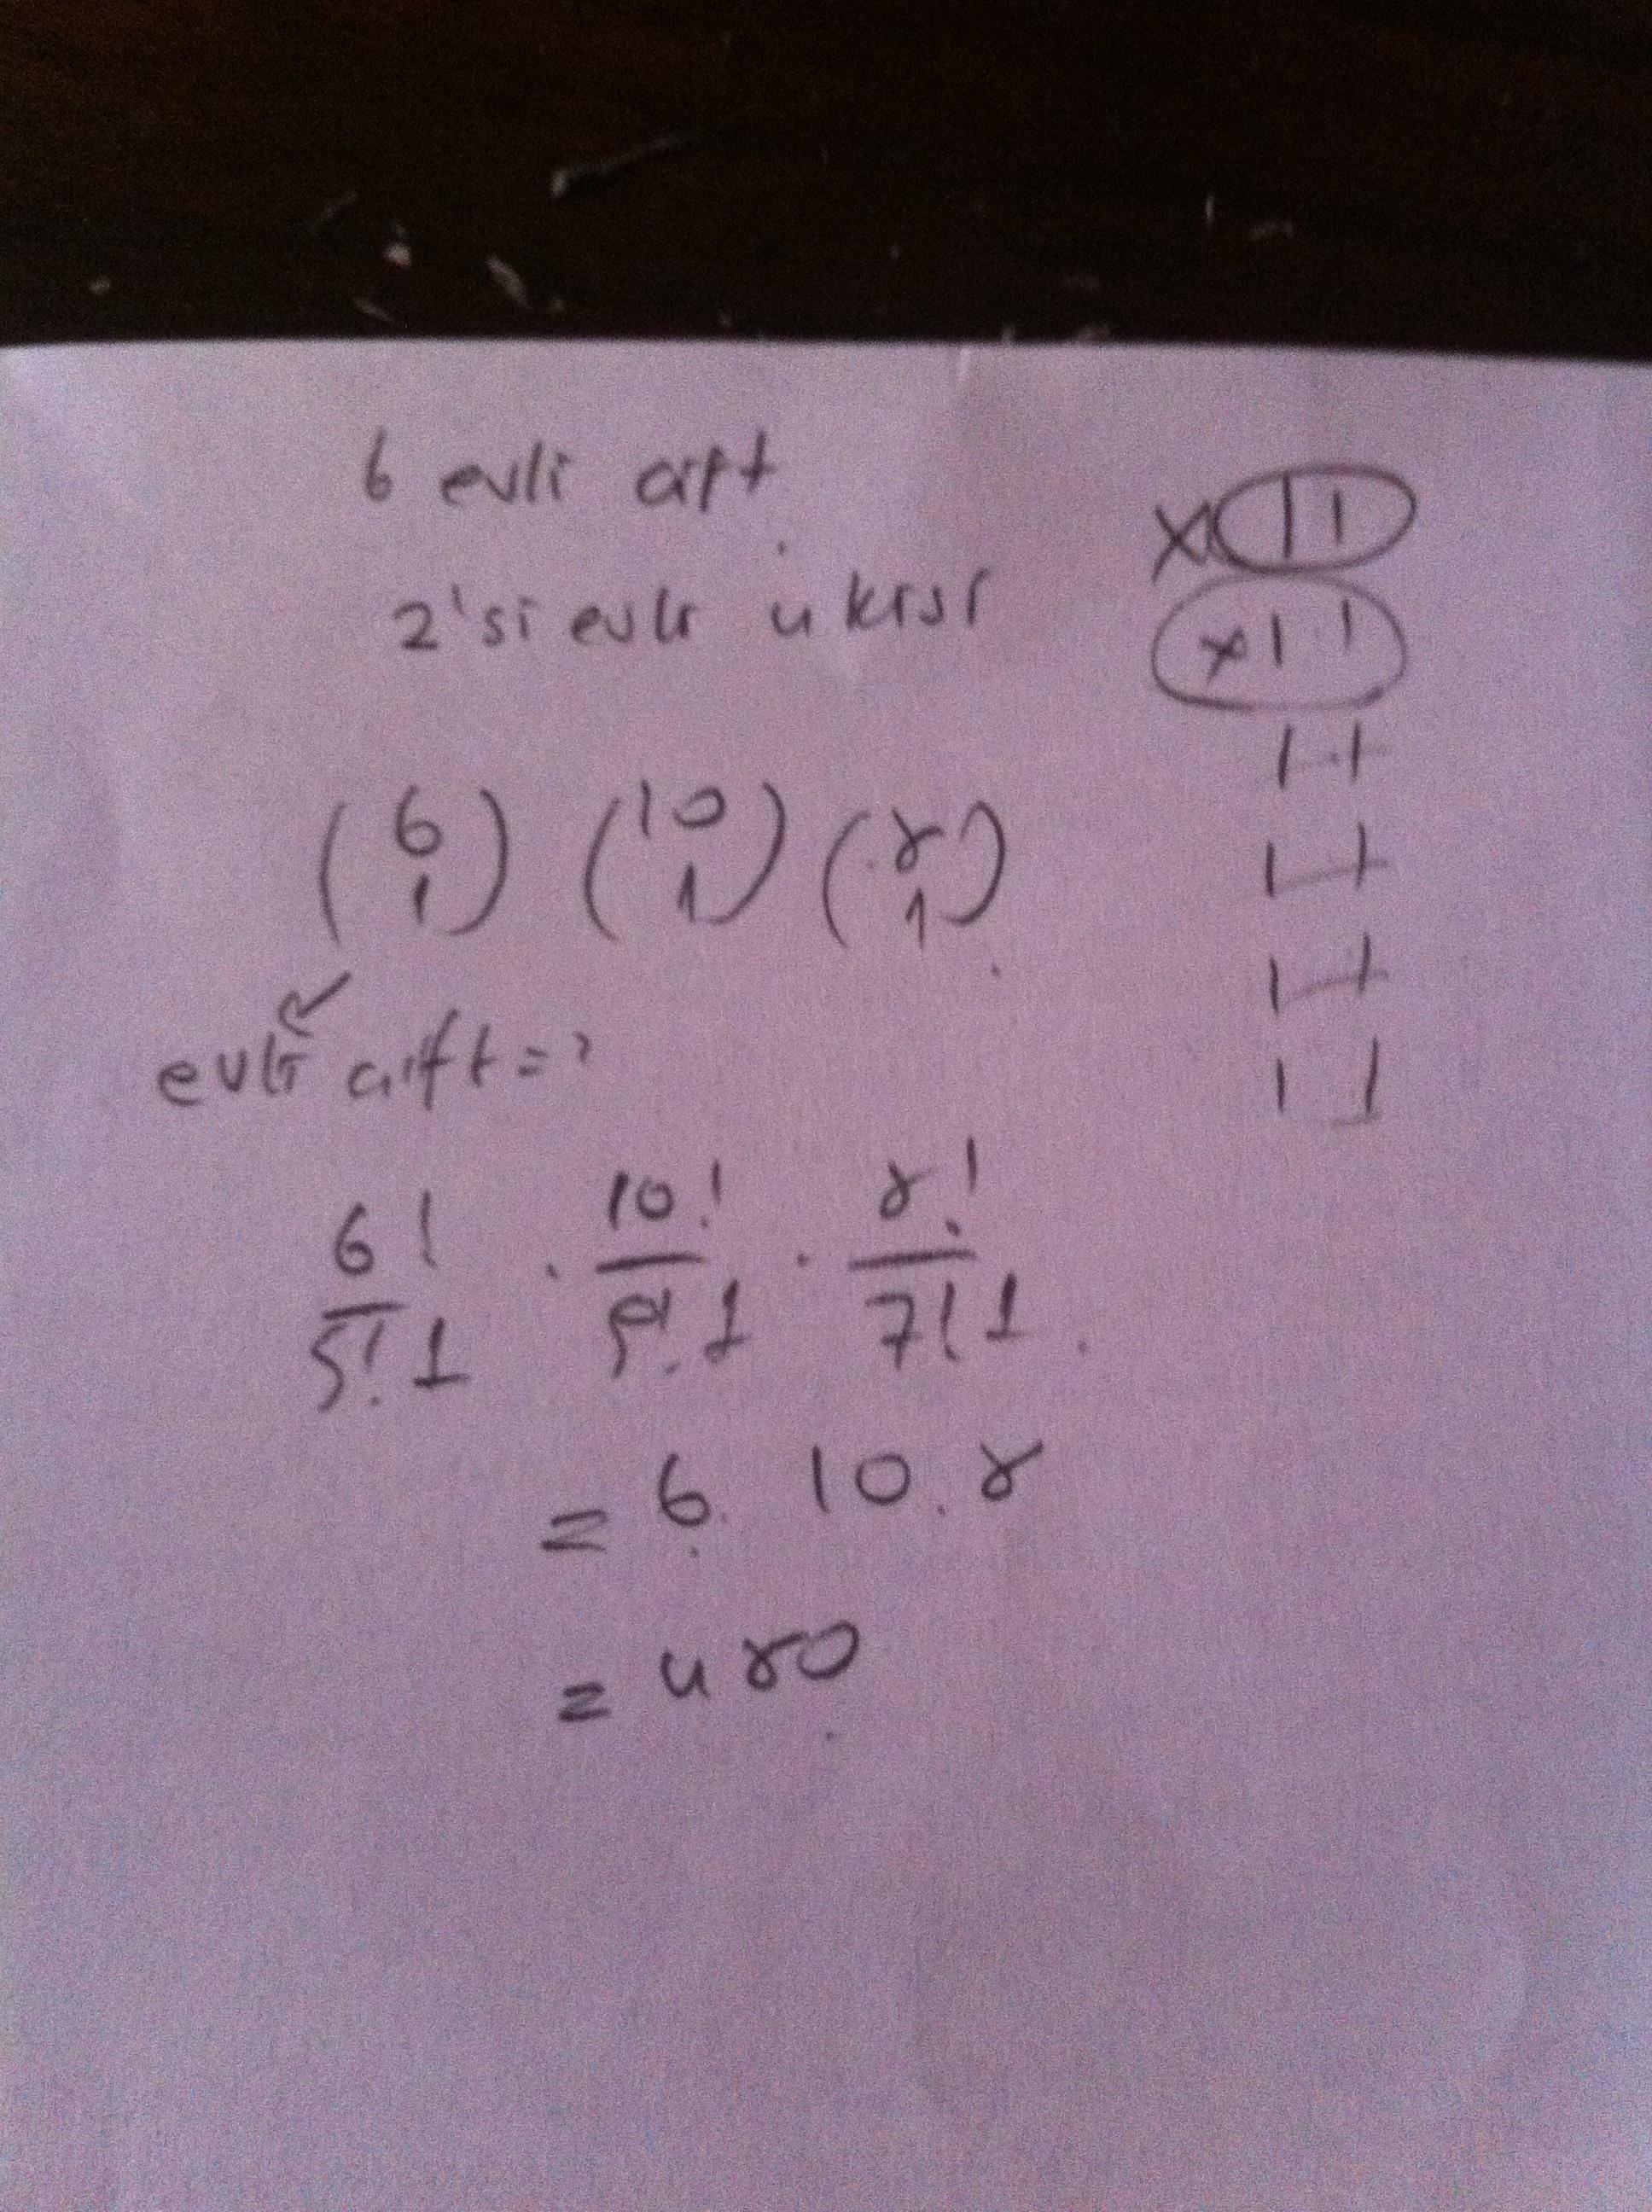 6 evli çift
2'si evli 4 kişi
(6 1) (10 1) (8 1)
evli çift = ?
6!/5!.1 . 10!/9!.1 . 8!/7!.1
= 6. 10. 8
= 480